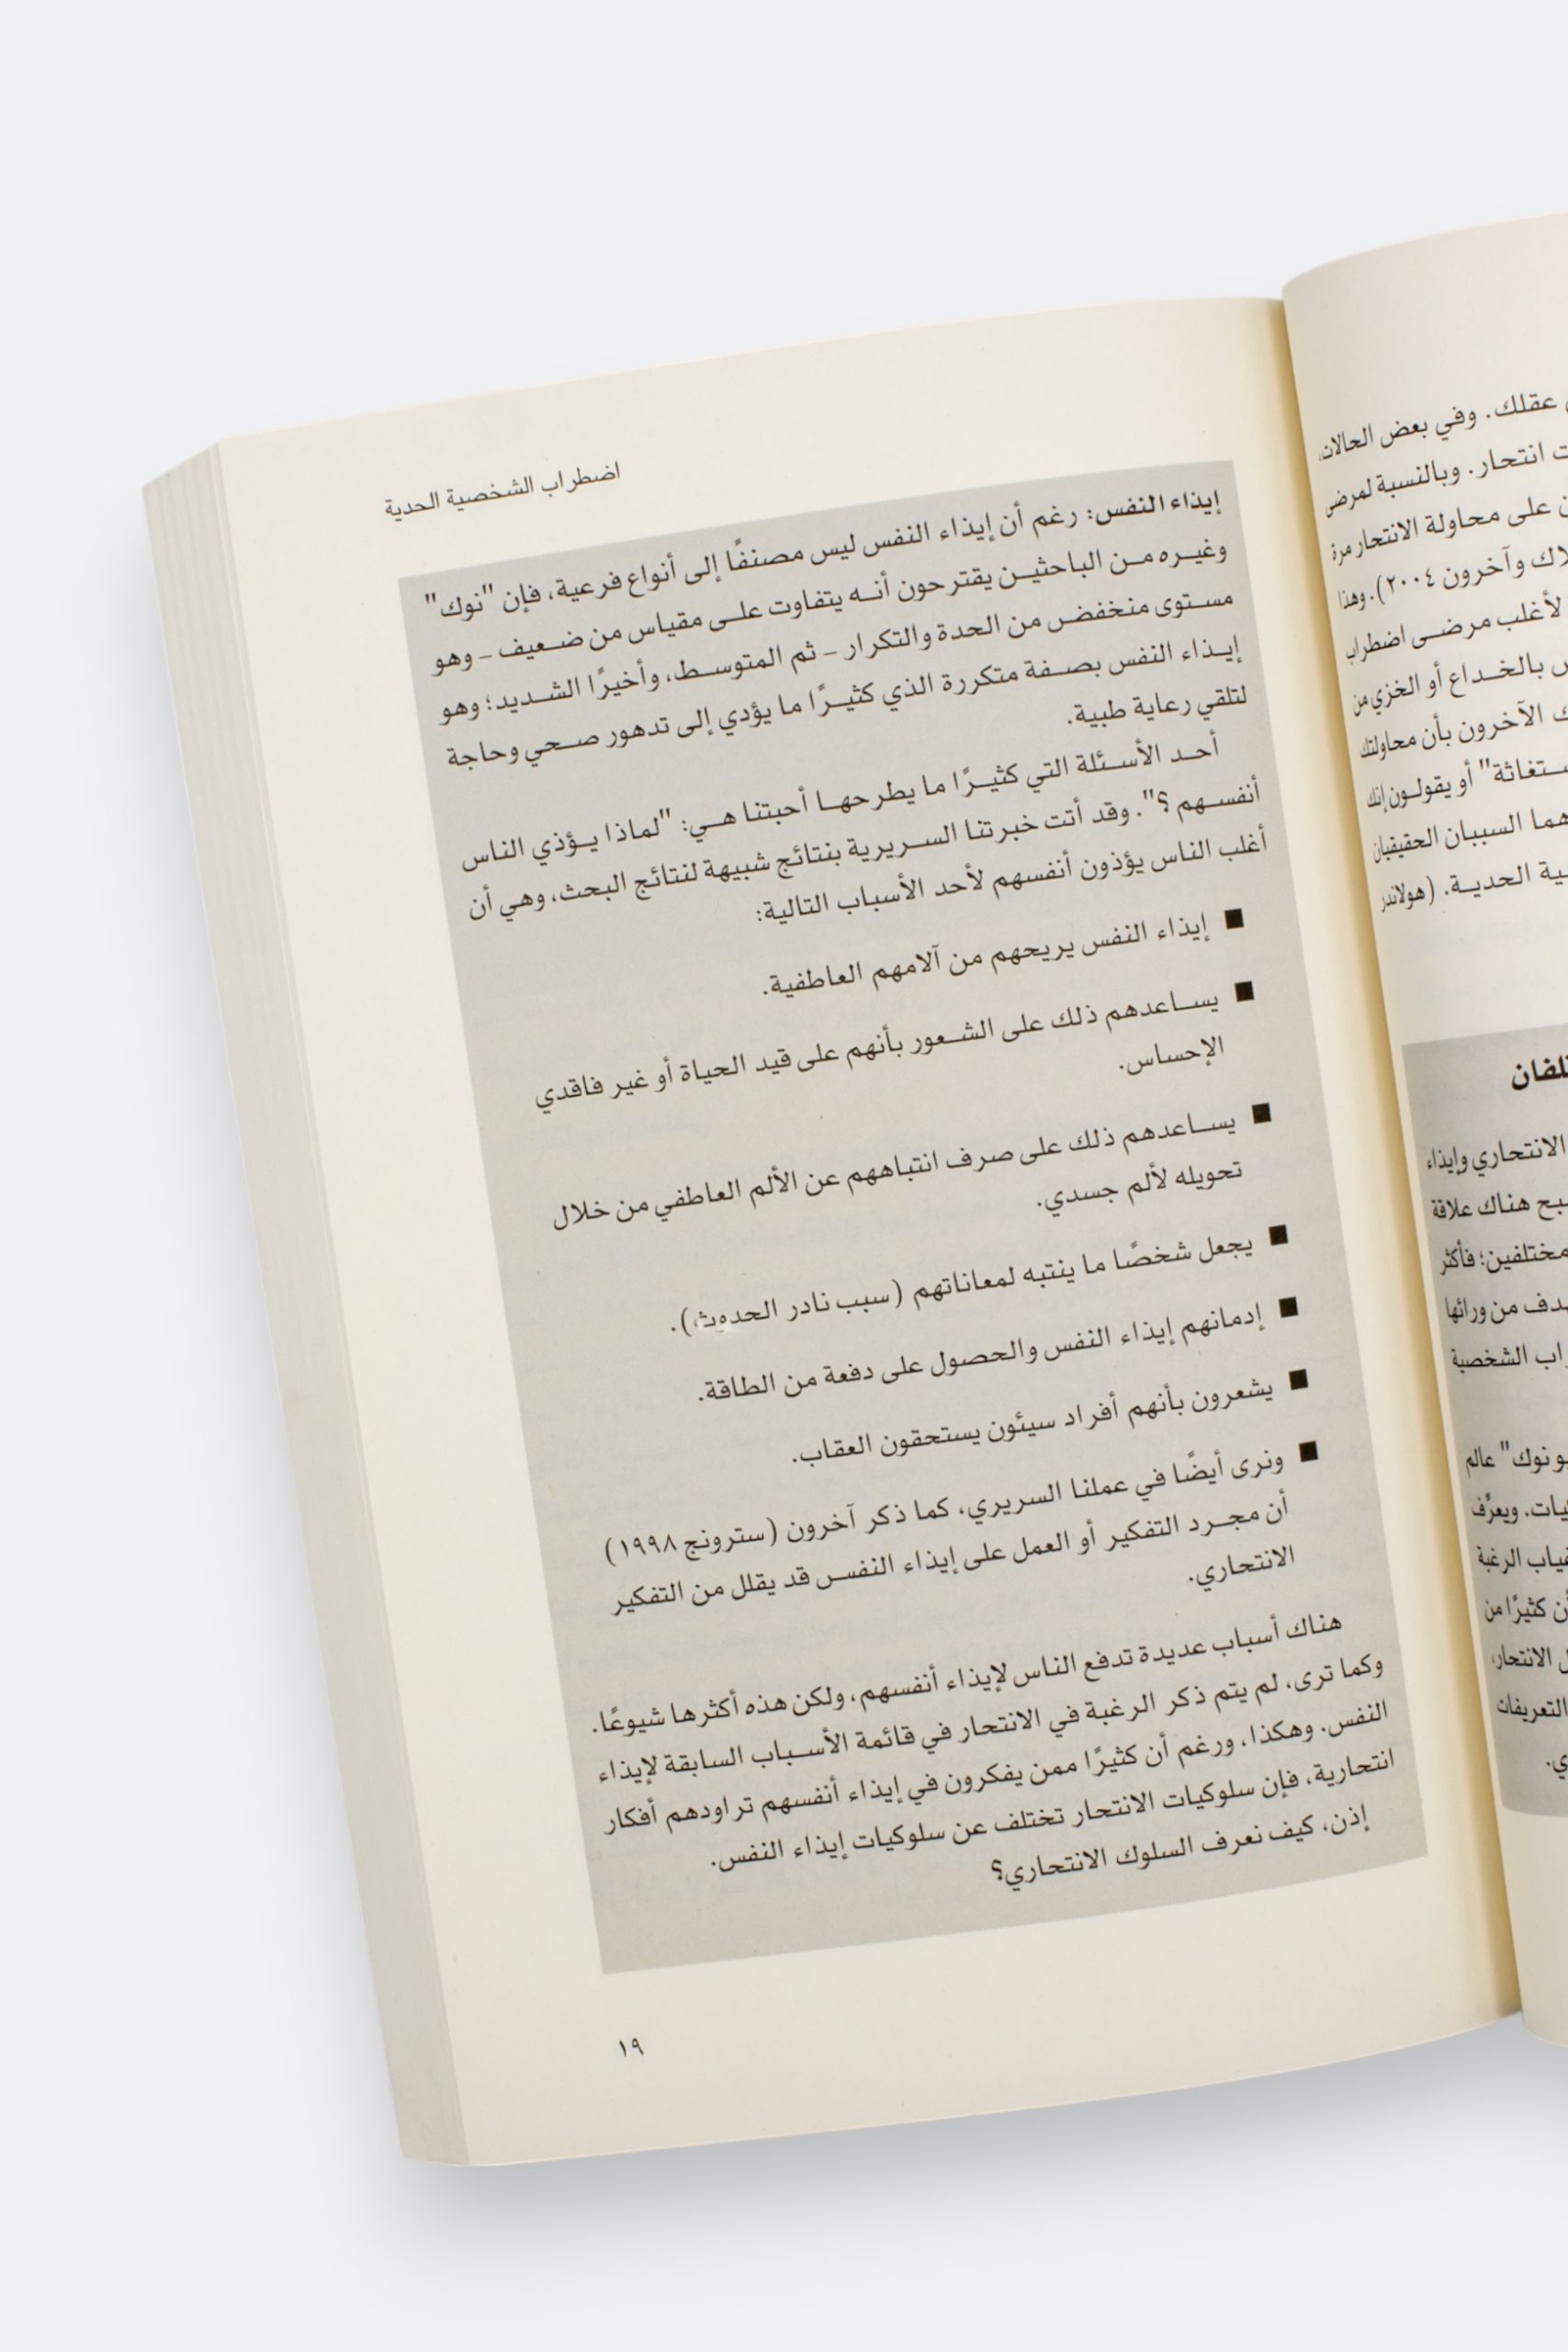 عقلك. وفي بعض الحالات،
انتحار. وبالنسبة لمرضى
على محاولة الانتحار مرة
وآخرون ٢٠٠٤). وهذا
لأغلب مرضى اضطراب
بالخداع أو الخزي من
الآخرون بأن محاولتك
أو يقولون إنك
هما السببان الحقيقيان
الحدية. (هولاندر
الانتحاري وإيذاء
هناك علاقة
مختلفين؛ فأكثر
من ورائها
الشخصية
نوك" عالم
ويعرِّف
الرغبة
كثيرًا من
الانتحار،
التعريفات
اضطراب الشخصية الحدية
إيذاء النفس: رغم أن إيذاء النفس ليس مصنفًا إلى أنواع فرعية، فإن "نوك"
وغيره من الباحثين يقترحون أنه يتفاوت على مقياس من ضعيف – وهو
مستوى منخفض من الحدة والتكرار – ثم المتوسط، وأخيرًا الشديد؛ وهو
إيذاء النفس بصفة متكررة الذي كثيرًا ما يؤدي إلى تدهور صحي وحاجة
لتلقي رعاية طبية.
أحد الأسئلة التي كثيرًا ما يطرحها أحبتنا هي: "لماذا يؤذي الناس
أنفسهم ؟". وقد أتت خبرتنا السريرية بنتائج شبيهة لنتائج البحث، وهي أن
أغلب الناس يؤذون أنفسهم لأحد الأسباب التالية:
■ إيذاء النفس يريحهم من آلامهم العاطفية.
■ يساعدهم ذلك على الشعور بأنهم على قيد الحياة أو غير فاقدي
الإحساس.
■ يساعدهم ذلك على صرف انتباههم عن الألم العاطفي من خلال
تحويله لألم جسدي.
■ يجعل شخصًا ما ينتبه لمعاناتهم (سبب نادر الحدوث).
■ إدمانهم إيذاء النفس والحصول على دفعة من الطاقة.
■ يشعرون بأنهم أفراد سيئون يستحقون العقاب.
■ ونرى أيضًا في عملنا السريري، كما ذكر آخرون (سترونج ١٩٩٨)
أن مجرد التفكير أو العمل على إيذاء النفس قد يقلل من التفكير
الانتحاري.
هناك أسباب عديدة تدفع الناس لإيذاء أنفسهم، ولكن هذه أكثرها شيوعًا.
وكما ترى، لم يتم ذكر الرغبة في الانتحار في قائمة الأسباب السابقة لإيذاء
النفس. وهكذا، ورغم أن كثيرًا ممن يفكرون في إيذاء أنفسهم تراودهم أفكار
انتحارية، فإن سلوكيات الانتحار تختلف عن سلوكيات إيذاء النفس.
إذن، كيف نعرف السلوك الانتحاري؟
١٩